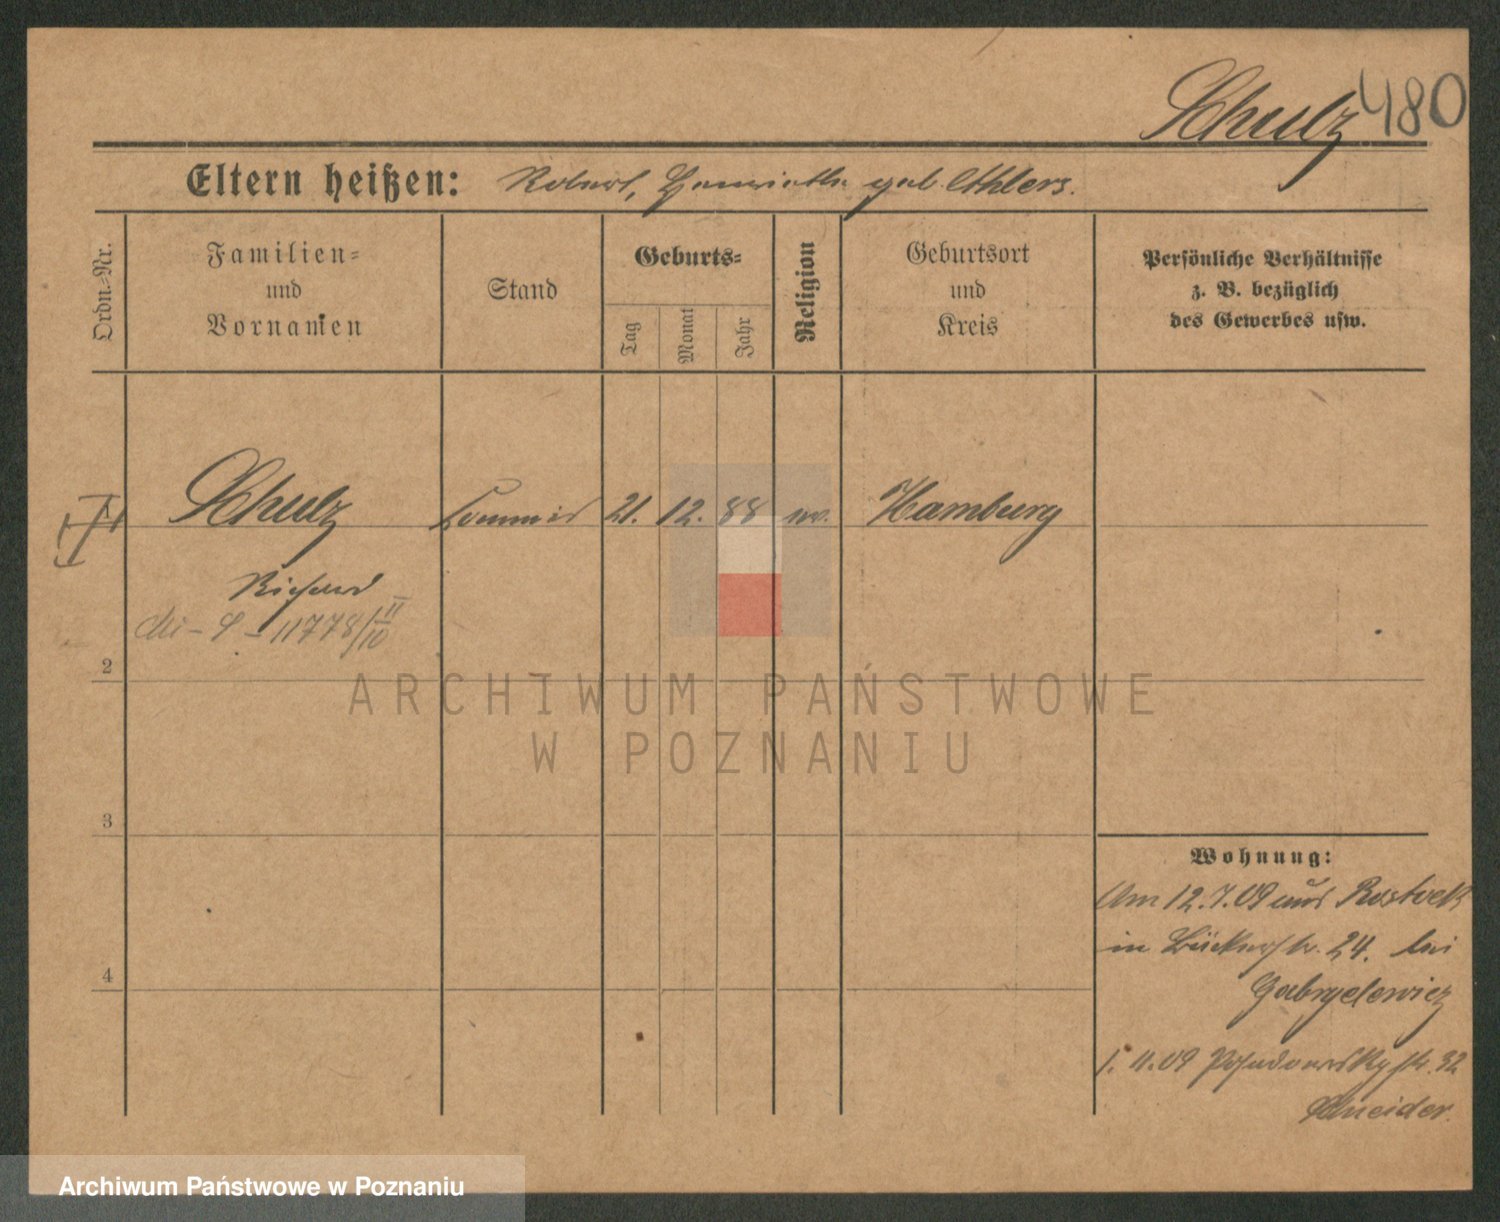 Schulz 480
Eltern heißen: Robert, Henriette geb. Ehlers.
Ordn.-Nr.
Familien-
und
Vornamen
Stand
Geburts-
Tag
Monat
Jahr
Religion
Geburtsort
und
Kreis
Persönliche Verhältnisse
z. B. bezüglich
des Gewerbes usw.
Schulz Kommis 21. 12. 88 ev. Hamburg
Richard
11778/10
2
ARCHIWUM PAŃSTWOWE
W POZNANIU
3
4
Wohnung:
Am 12.7.09 aus Rostock
in Bäckerstr. 24. bei
Gabryelewicz
1.11.09 Posadowskystr. 32
Schneider.
Archiwum Państwowe w Poznaniu